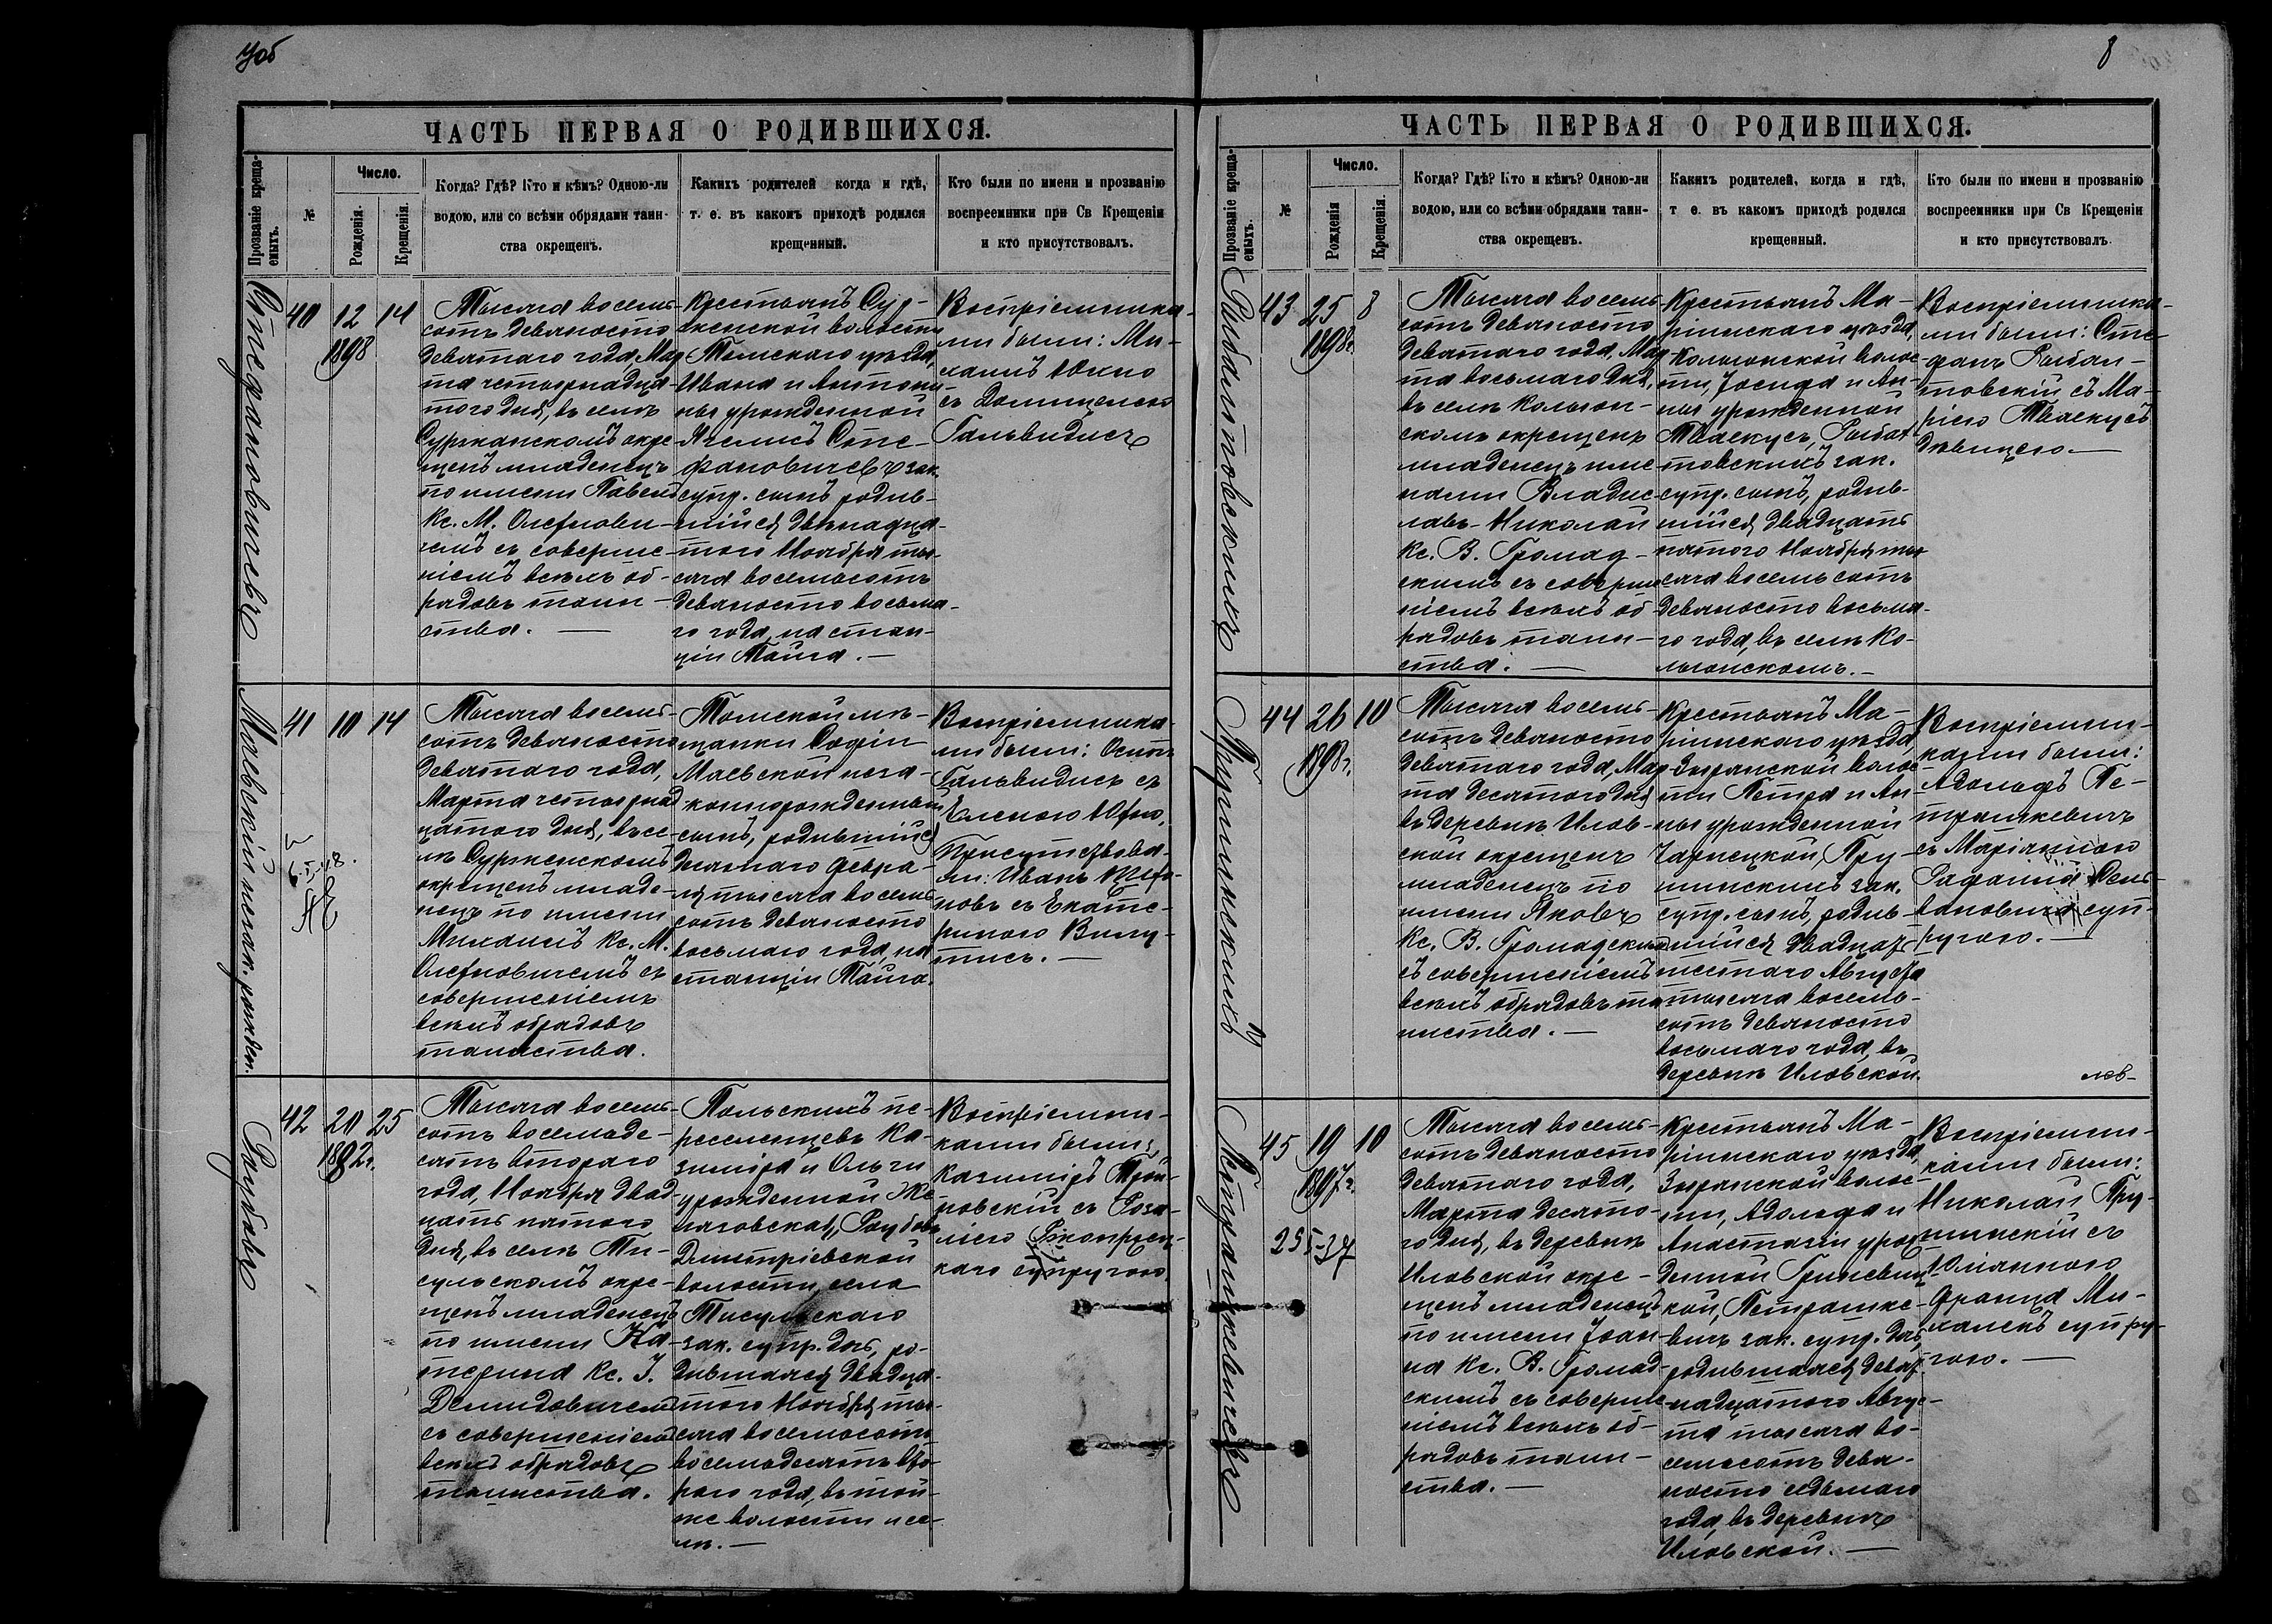 8
ЧАСТЬ ПЕРВАЯ О РОДИВШИХСЯ.
Прозваніе креща-
емыхъ.
№
Число.
Рожденія.
Крещенія.
Когда? Гдѣ? Кто и кѣмъ? Одною-ли
водою, или со всѣми обрядами таин-
ства окрещенъ.
Какихъ родителей когда и гдѣ,
т. е. въ какомъ приходѣ родился
крещенный.
Кто были по имени и прозванію
воспреемники при Св Крещеніи
и кто присутствовалъ.
Стефановичевъ
40
12
1898
14
Тысяча восемь-
сотъ девяносто
девятаго года, Мар
та четырнадца-
того дня, въ селѣ
окре-
щенъ младенецъ
по имени Павелъ
Кс. М. Олехнови-
чемъ съ соверше-
ніемъ всѣхъ об-
рядовъ таин-
ства. —
Крестьянъ Суд-
женской волости
Томскаго уѣзда,
Ивана и Антони-
ны урожденной
Стефановичевъ зак.
супр. сынъ, родив-
шійся двѣнадца-
того Ноября ты-
сяча восемьсотъ
девяносто восьма-
го года, на стан-
ціи Тайга. —
Воспріемника-
ми были: Ми-
хаилъ Юхно
съ Домицелею
Гальвидисъ
Маевскій незак. рожден.
41
10
14
Тысяча восемь-
сотъ девяносто
девятаго года,
Марта четырнад
цатого дня, въ се-
лѣ Судженскомъ
окрещенъ младе-
нецъ по имени
Михаилъ Кс. М.
Олехновичемъ съ
совершеніемъ
всѣхъ обрядовъ
таинства.
Томской мѣ-
щанки Софіи
Маевской неза-
коннорожденный
сынъ, родившійся
десятаго Февра-
ля тысяча восемь
сотъ девяносто
восьмаго года, на
станціи Тайга.
Воспріемника-
ми были: Осипъ
Гальвидисъ съ
Еленою Юхно,
Присутствова-
ли: Иванъ
съ Екате-
риною
42
20
1882 г.
25
Тысяча восемь-
сотъ восемьде-
сятъ втораго
года, Ноября двад-
цать пятого
дня, въ селѣ Ти-
сульскомъ окре-
щенъ младенецъ
по имени Ка-
терина Кс. І.
Демидовичемъ
съ совершеніемъ
всѣхъ обрядовъ
таинства.
Польскихъ пе-
реселенцевъ Ка-
зиміра и Ольги
урожденной
Дмитріевской
волости, села
Тисульскаго
зак. супр. дочь, ро-
дившаяся двадца-
того Ноября ты-
сяча восемьсотъ
восемьдесятъ вто-
раго года, въ той-
же волости и се-
лѣ. —
Воспріемни-
ками были:
Казиміръ
съ Роза-
ліею
супругою.
ЧАСТЬ ПЕРВАЯ О РОДИВШИХСЯ.
Прозваніе креща-
емыхъ.
№
Число.
Рожденія
Крещенія.
Когда? Гдѣ? Кто и кѣмъ? Одною-ли
водою, или со всѣми обрядами таин-
ства окрещенъ.
Какихъ родителей, когда и гдѣ,
т е. въ какомъ приходѣ родился
крещенный.
Кто были по имени и прозванію
воспреемники при Св Крещеніи
и кто присутствовалъ.
Рыбалтовскихъ
43
25
1898 г.
8
Тысяча восемь
сотъ девяносто
девятаго года, Мар
та восьмаго дня,
въ селѣ Кольон-
скомъ окрещенъ
младенецъ име-
нами Владис-
лавъ-Николай
Кс. В. Громад-
скимъ съ соверше
ніемъ всѣхъ об-
рядовъ таин-
ства. —
Крестьянъ Ма-
ріинскаго уѣзда,
Кольонской волос-
ти, Іосифа и Ан-
ны урожденной
Рыбал
товскихъ зак.
супр. сынъ, родив-
шійся двадцать
пятого Ноября ты
сяча восемь сотъ
девяносто восьма-
го года, въ селѣ Ко-
льонскомъ. —
Воспріемника-
ми были: Сте-
фанъ Рыбал-
товскій съ Ма-
ріею
дѣвицею. —
Прушинскихъ
44
26
1898 г.
10
Тысяча восемь-
сотъ девяносто
девятаго года, Мар
та десятого дня
въ деревнѣ Илов-
ской окрещенъ
младенецъ по
имени Яковъ
Кс. В. Громадскимъ
съ совершеніемъ
всѣхъ обрядовъ та
инства. —
Крестьянъ Ма-
ріинскаго уѣзда,
Зырянской волос-
ти Петра и Ан-
ны урожденной
Чарнецкой, Пру-
шинскихъ зак.
супр. сынъ, родив-
шійся двадцать
шестаго Августа
тысяча восемь-
сотъ девяносто
восьмаго года, въ
деревнѣ Иловской.
Воспріемни-
ками были:
Адольфъ Пе-
трашкевичъ
съ Маріянною
Рафаила
супр-
ругою. —
лев-
Петрашкевичевъ
45
19
1897 г.
10
Тысяча восемь-
сотъ девяносто
девятаго года,
Марта десято-
го дня, въ деревнѣ
Иловской окре-
щенъ младенецъ
по имени Іоан-
на Кс. В. Громад-
скимъ съ соверше-
ніемъ всѣхъ об-
рядовъ таин-
ства. —
Крестьянъ Ма-
ріинскаго уѣзда,
Зырянской волос-
ти, Адольфа и
Анастасіи урож-
денной Гриневиц-
кой, Петрашке-
вичъ зак. супр. дочь,
родившаяся девят-
надцатого Авгус-
та тысяча во-
семьсотъ девя-
носто седьмаго
года, въ деревнѣ
Иловской. —
Воспріемни-
ками были:
Николай Пру-
шинскій съ
Юліянною
Франца Ми-
халекъ супру-
гою. —